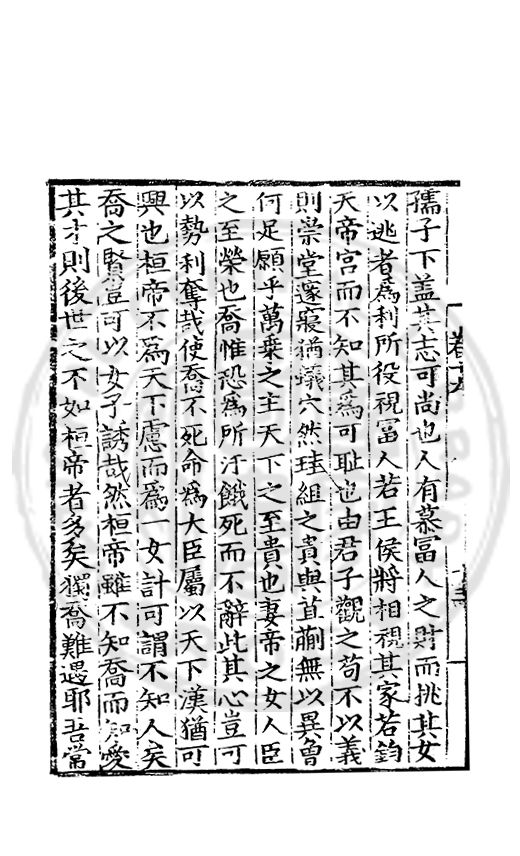 孺子下盖其志可尚也人有慕冨人之財而挑其女
以逃者爲利所役視冨人若王侯將相視其家若鈞
天帝宮而不知其爲可耻也由君子觀之苟不以義
則崇堂邃寢猶蟻穴然珪組之貴與苴蒯無以異魯
何足願乎萬乗之主天下之至貴也妻帝之女人臣
之至榮也喬惟恐爲所汙餓死而不辭此其心豈可
以勢利奪哉使喬不死命爲大臣屬以天下漢猶可
興也桓帝不爲天下慮而爲一女計可謂不知人矣
喬之賢豈可以女子誘哉然桓帝雖不知喬而知愛
其才則後世之不如桓帝者多矣獨喬難遇耶吾當